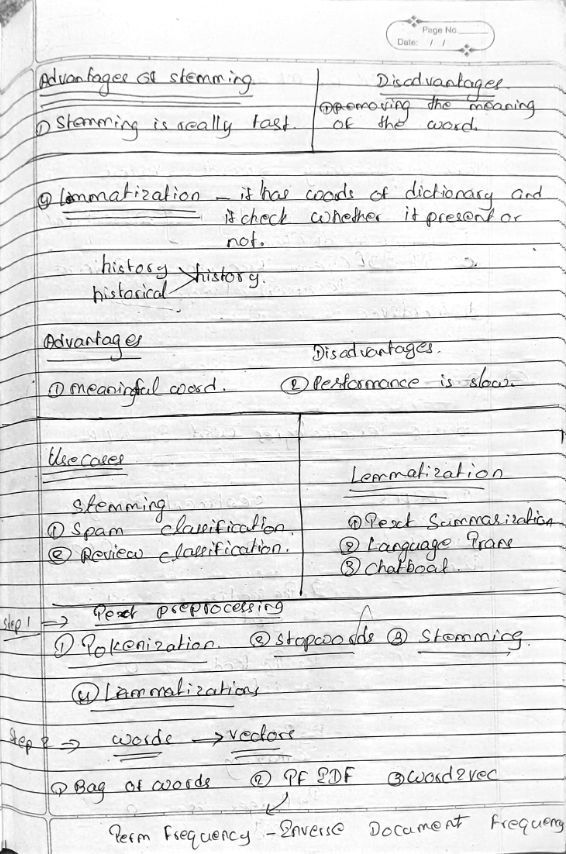 Page No.
Date: / /
Advantages of stemming
Disadvantages.
① Stemming is really fast.
① Removing the meaning
of the word.
④ Lemmatization - it has words of dictionary and
it check whether it present or
not.
history
history.
historical
Advantages
Disadvantages.
① meaningful word.
② Performance is slow.
Use Cases
Lemmatization
Stemming
① Spam classification.
② Review classification.
① Text Summarization
② Language Trans
③ Chatboat.
Step 1 → Text preprocessing
① Tokenization. ② Stopwords ③ Stemming.
④ Lammatizations
Step 2 ⇒ words → vectors
① Bag of words ② TF IDF ③ Word2vec
Term Frequency - Inverse Document Frequency